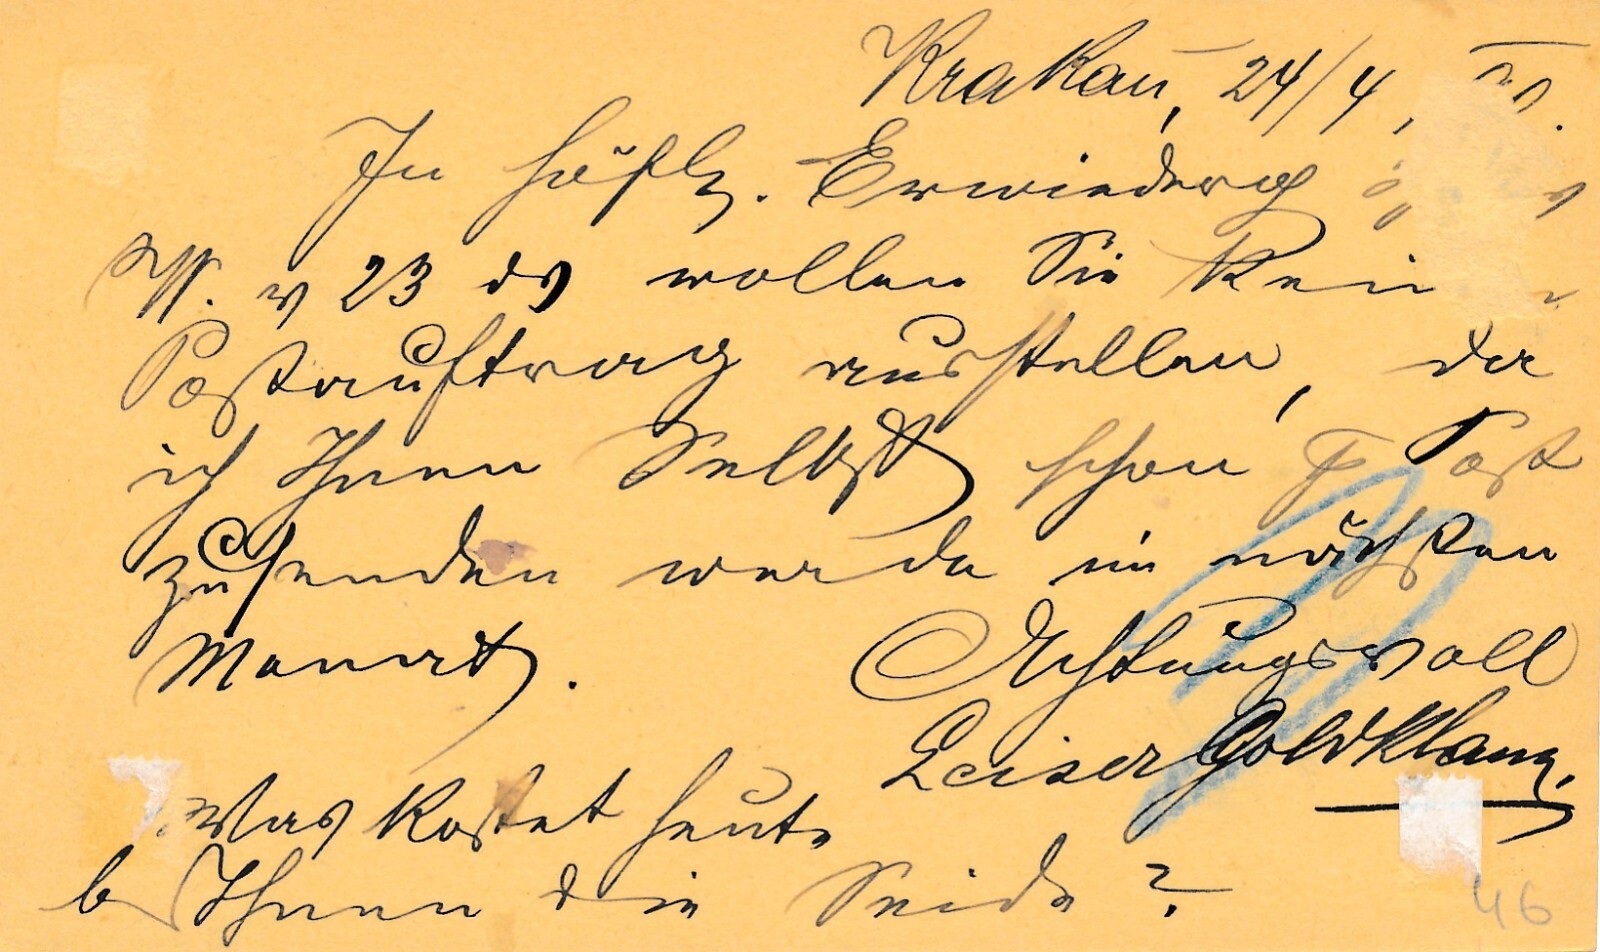 Krakau, 24/4,
In höfl. Erwiederg
v 23 ds wollen Sie kein
Postauftrag ausstellen, da
ich Ihnen Selbst schon p Post
zusenden werde im nächsten
Monat.
Achtungsvoll
Leiser Goldklang.
Was kostet heute
b Ihnen die Seide?
46